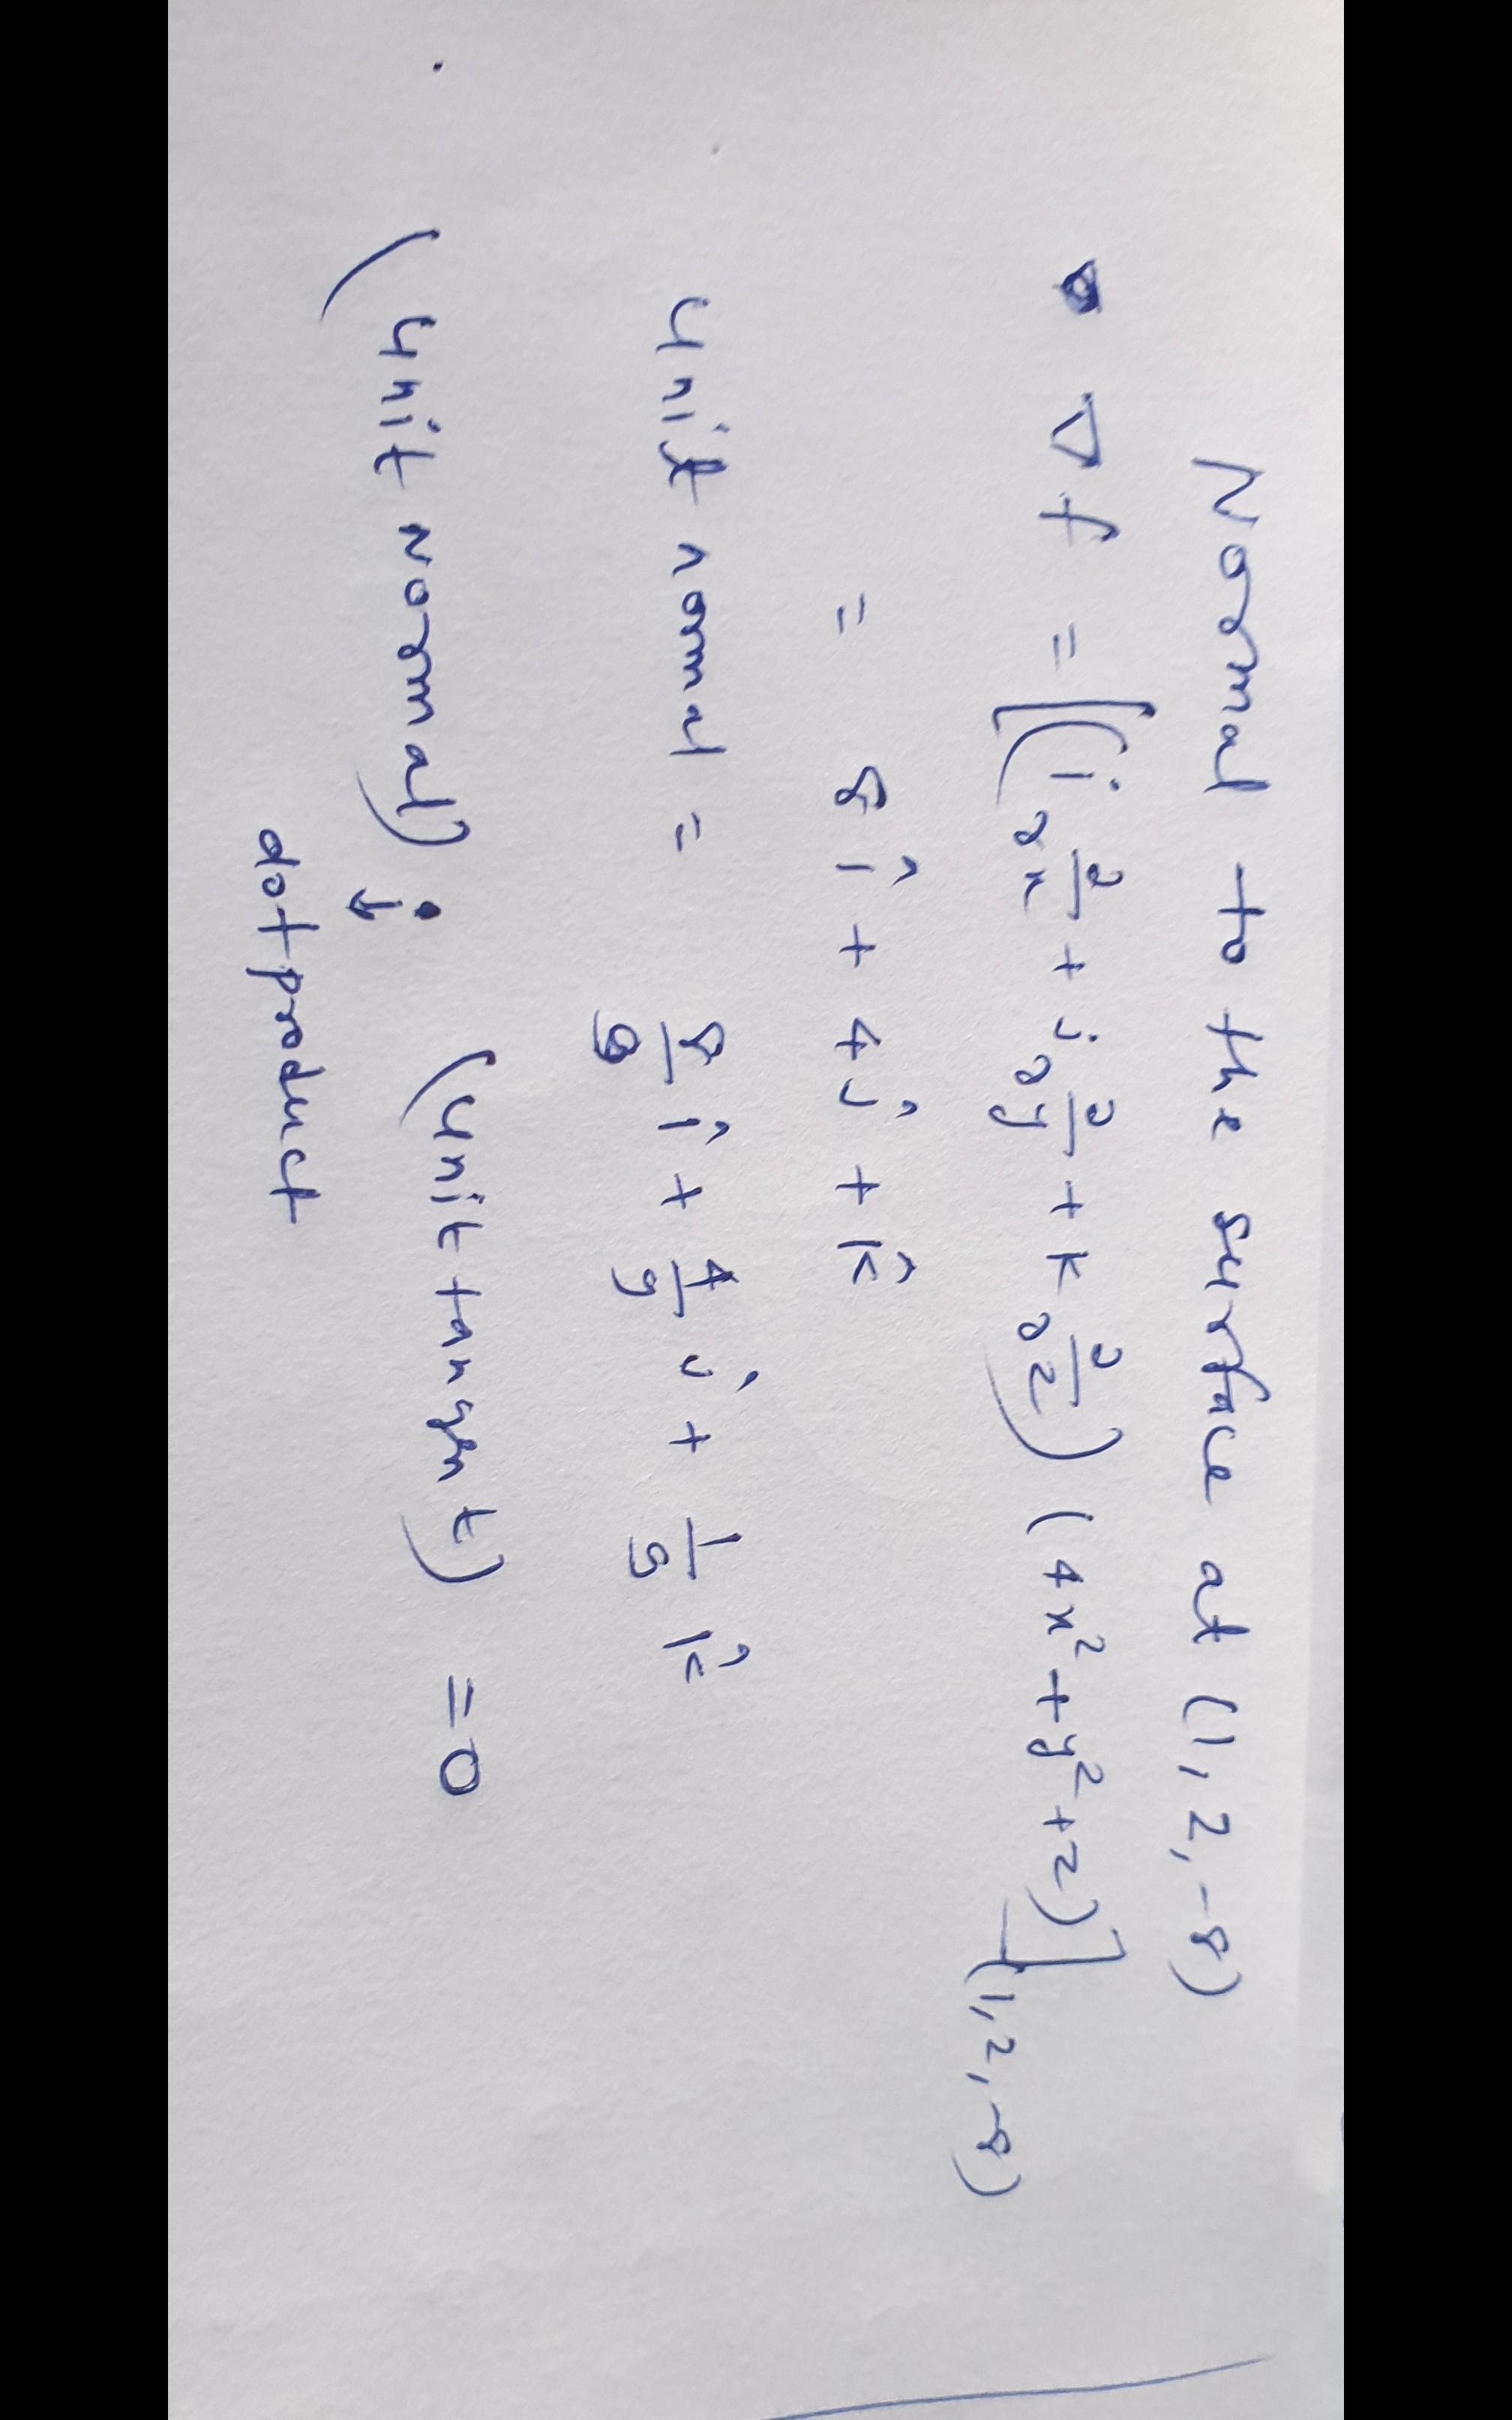 Normal to the surface at (1, 2, -8)
∇f = [(i ∂/∂x + j ∂/∂y + k ∂/∂z) (4x² + y² + z)](1, 2, -8)
= 8 î + 4 ĵ + k̂
unit normal = 8/9 î + 4/9 ĵ + 1/9 k̂
(unit normal) • (unit tangent) = 0
↓
dot product